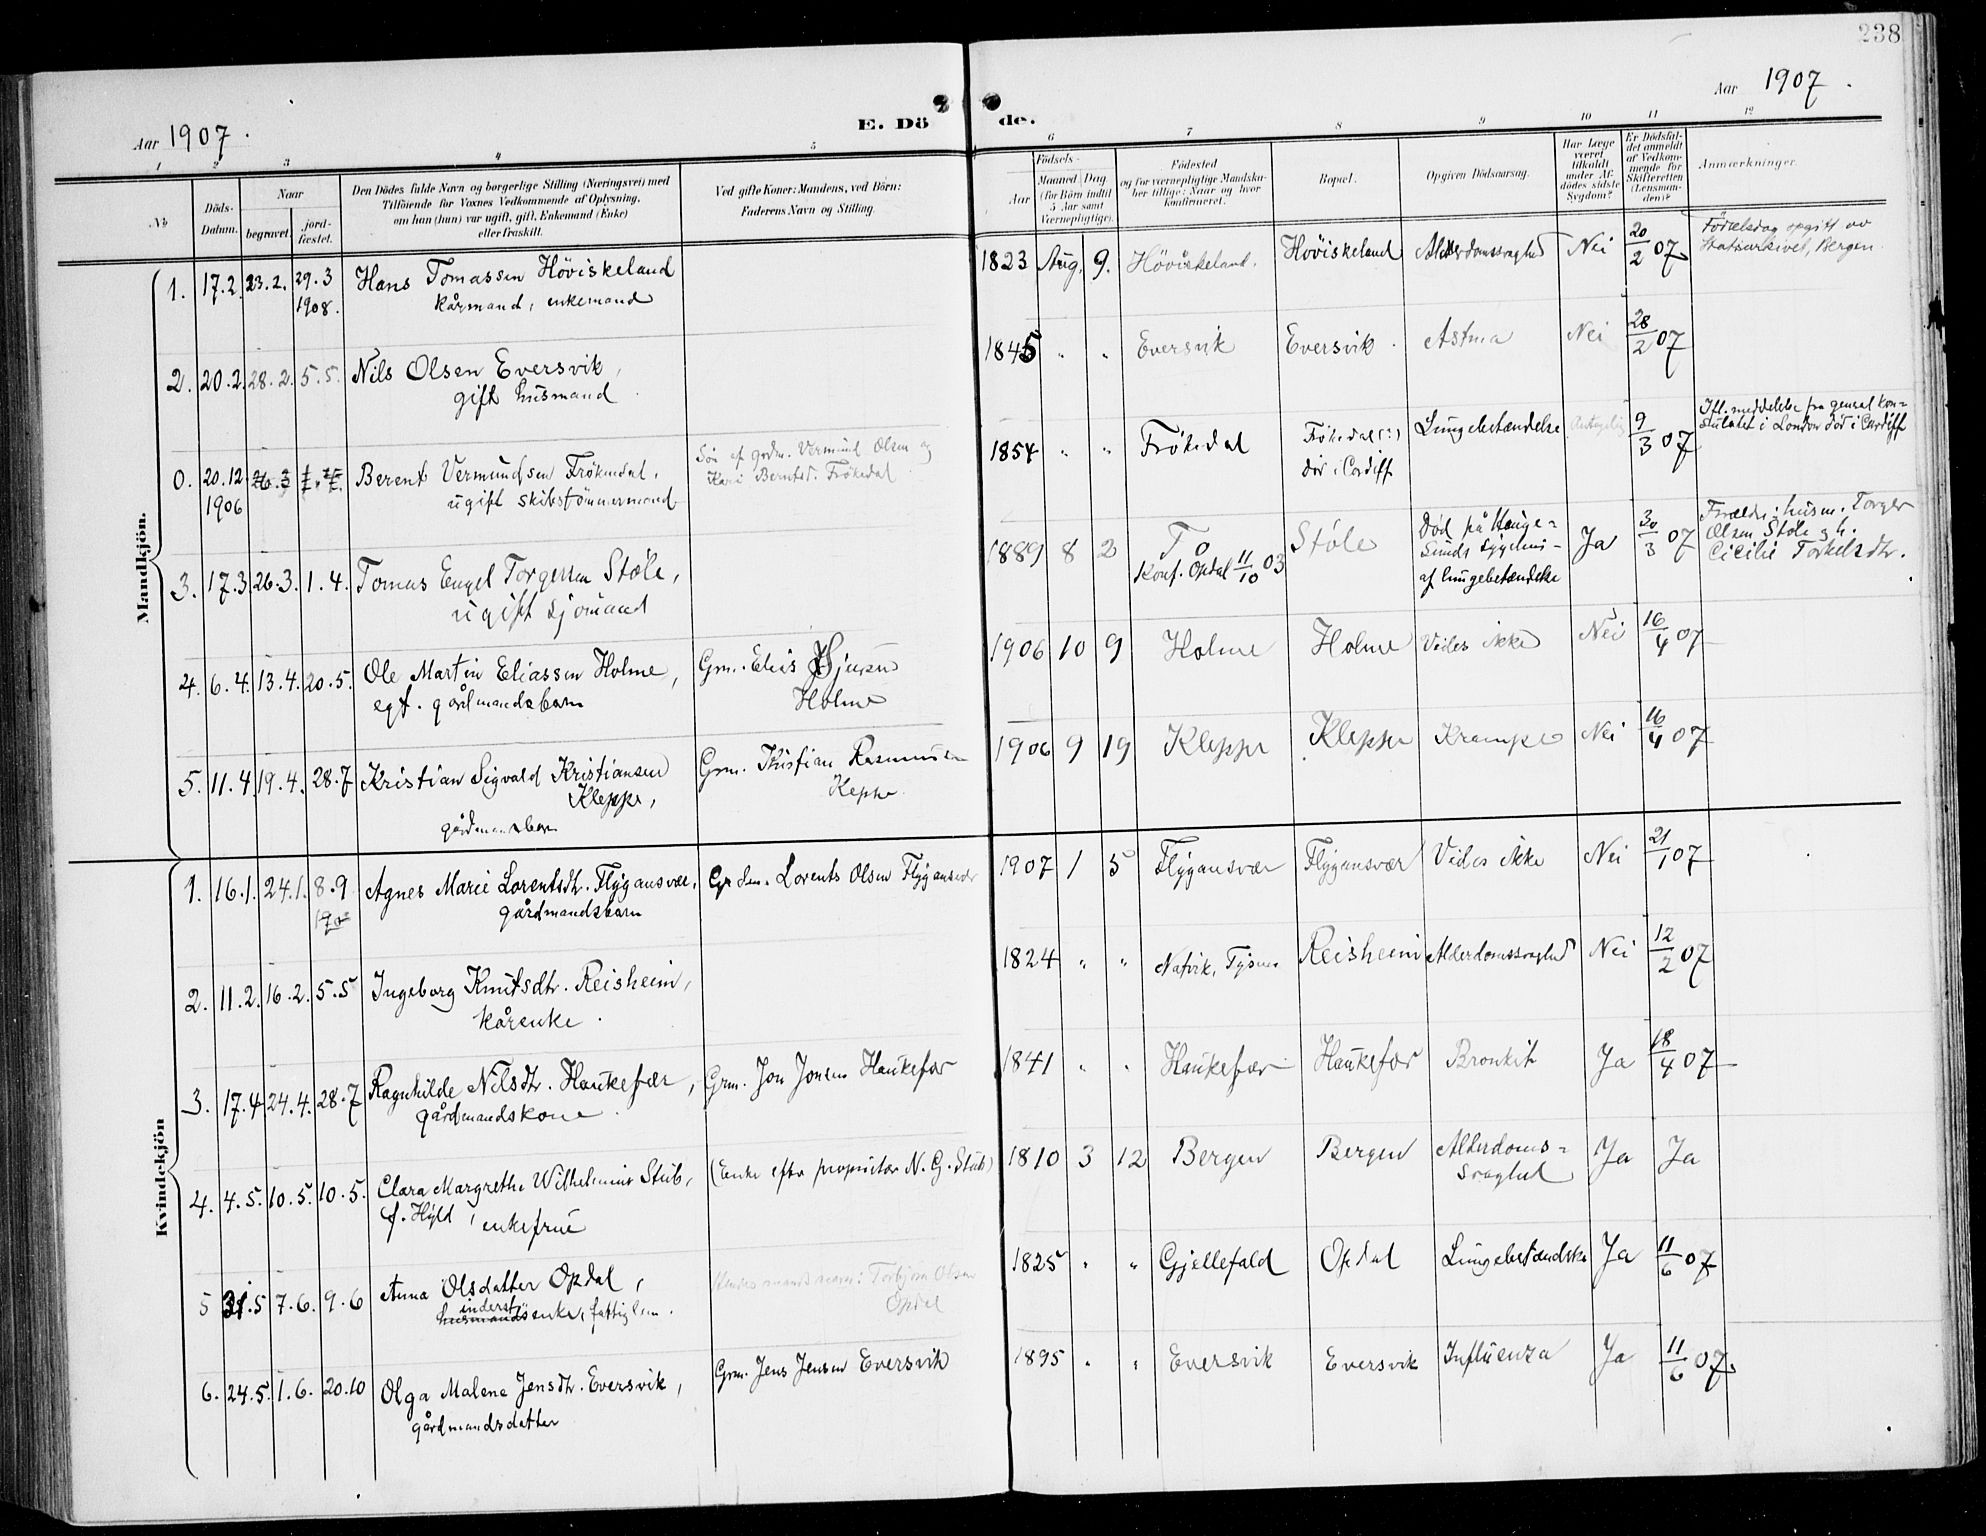 238
Aar 1907.
E. Döde.
Aar 1907.
1 2 3 4 5 6 7 8 9 10 11 12
No.
Döds-Datum.
Naar
begravet.
jord-fæstet.
Den Dödes fulde Navn og borgerlige Stilling (Næringsvei) med
Tilföiende for Voxnes Vedkommende af Oplysning,
om han (hun) var ugift, gift, Enkemand (Enke)
eller fraskilt.
Ved gifte Koner: Mandens, ved Börn:
Faderens Navn og Stilling.
Födsels-
Aar
Maaned Dag
(for Börn indtil
5 Aar samt
Værnepligtige).
Födested
og for værnepligtige Mandska-
ber tillige: Naar og hvor
konfirmeret.
Bopæl.
Opgiven Dödsaarsag.
Har Læge
været
tilkaldt
under Af-
dödes sidste
Sygdom?
Er Dödsfal-
det anmeldt
af Vedkom-
mende for
Skifteretten
(Lensman-
den)?
Anmærkninger.
Mandkjön.
1. 17.2. 23.2. 29.3 1908. Hans Tomassen Höviskeland
kårmand, enkemand
1823 Aug. 9. Höviskeland. Höviskeland Alderdomssvaghed Nei 20/2 07
Födselsdag opgitt av
Statsarkivet, Bergen.
2. 20.2. 28.2. 5.5. Nils Olsen Eversvik,
gift husmand
1845 " " Eversvik Eversvik. Astma Nei 28/2 07
0. 20.12 1906 26.3 Berent Vermundsen Frökedal,
ugift skibstömmermand
Sön af grdm. Vermund Olsen og
Kari Berntsd. Frökedal
1854 " " Frökedal Frökedal (?)
död i Cardiff
Lungebetændelse 9/3 07
Ifl. meddelelse fra general kon-
sulatet i London död i Cardiff
3. 17.3 26.3. 1.4. Tomas Engel Torgersen Støle,
ugift sjömand
1889 8 2 Tö
Konf. Opdal 11/10 03
Støle
Död på Hauge-
sunds sygehus
af lungebetændelse
Ja 30/3 07
Forældre: husm. Torger
Olsen Støle og h.
Cicilie Torkelsdtr.
4. 6.4. 13.4. 20.5. Ole Martin Eliassen Holme,
egt. gårdmandsbarn
Grm. Elias
Holme
1906 10 9 Holme Holme Vides ikke Nei 16/4 07
5. 11.4. 19.4. 28.7 Kristian Sigvald Kristiansen
Kleppe,
gårdmandsbarn
Grm. Kristian Rasmussen
Kleppe.
1906 9 19 Kleppe Kleppe Krampe Nei 16/4 07
Kvindekjön
1. 16.1. 24.1. 8.9 Agnes Marie Lorentsdtr. Flygansvær,
gårdmandsbarn
Grdm. Lorents Olsen Flygansvær
1907 1 5 Flygansvær Flygansvær Vides ikke Nei 21/1 07
2. 11.2. 16.2. 5.5 Ingeborg Knutsdtr. Reisheim,
kårenke.
1824 " " Natvik, Tysnes Reisheim Alderdomssvaghed Nei 12/2 07
3. 17.4 24.4. 28.7 Ragnhilde Nilsdtr. Haukefær,
gårdmandskone.
Grm. Jon Jonsen Haukefær
1841 " " Haukefær Haukefær Bronkit Ja 18/4 07
4. 4.5. 10.5. 10.5. Clara Margrethe Wilhelmine Stub,
f. Hyld, enkefrue
(Enke efter proprietær N. G. Stub)
1810 3 12 Bergen Bergen Alderdoms-
svaghed
Ja Ja
5 31.5 7.6. 9.6 Anna Olsdatter Opdal,
inderst
husmandsenke, fattiglem.
Hendes mands navn: Torbjörn Olsen
Opdal
1825 " " Gjellefald Opdal Lungebetændelse Ja 11/6 07
6. 24.5. 1.6. 20.10 Olga Malene Jensdtr. Eversvik,
gårdmandsdatter
Grm. Jens Jensen Eversvik
1895 " " Eversvik Eversvik Influenza Ja 11/6 07.